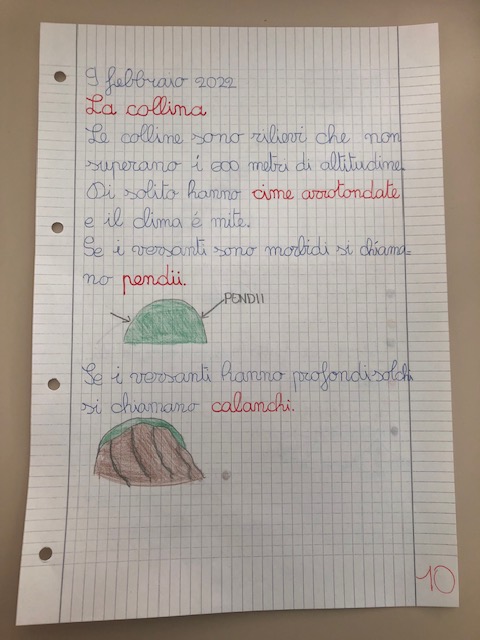 9 febbraio 2022
La collina
Le colline sono rilievi che non
superano i 600 metri di altitudine.
Di solito hanno cime arrotondate
e il clima é mite.
Se i versanti sono morbidi si chiama-
no pendii.
PENDII
Se i versanti hanno profondi solchi
si chiamano calanchi.
10